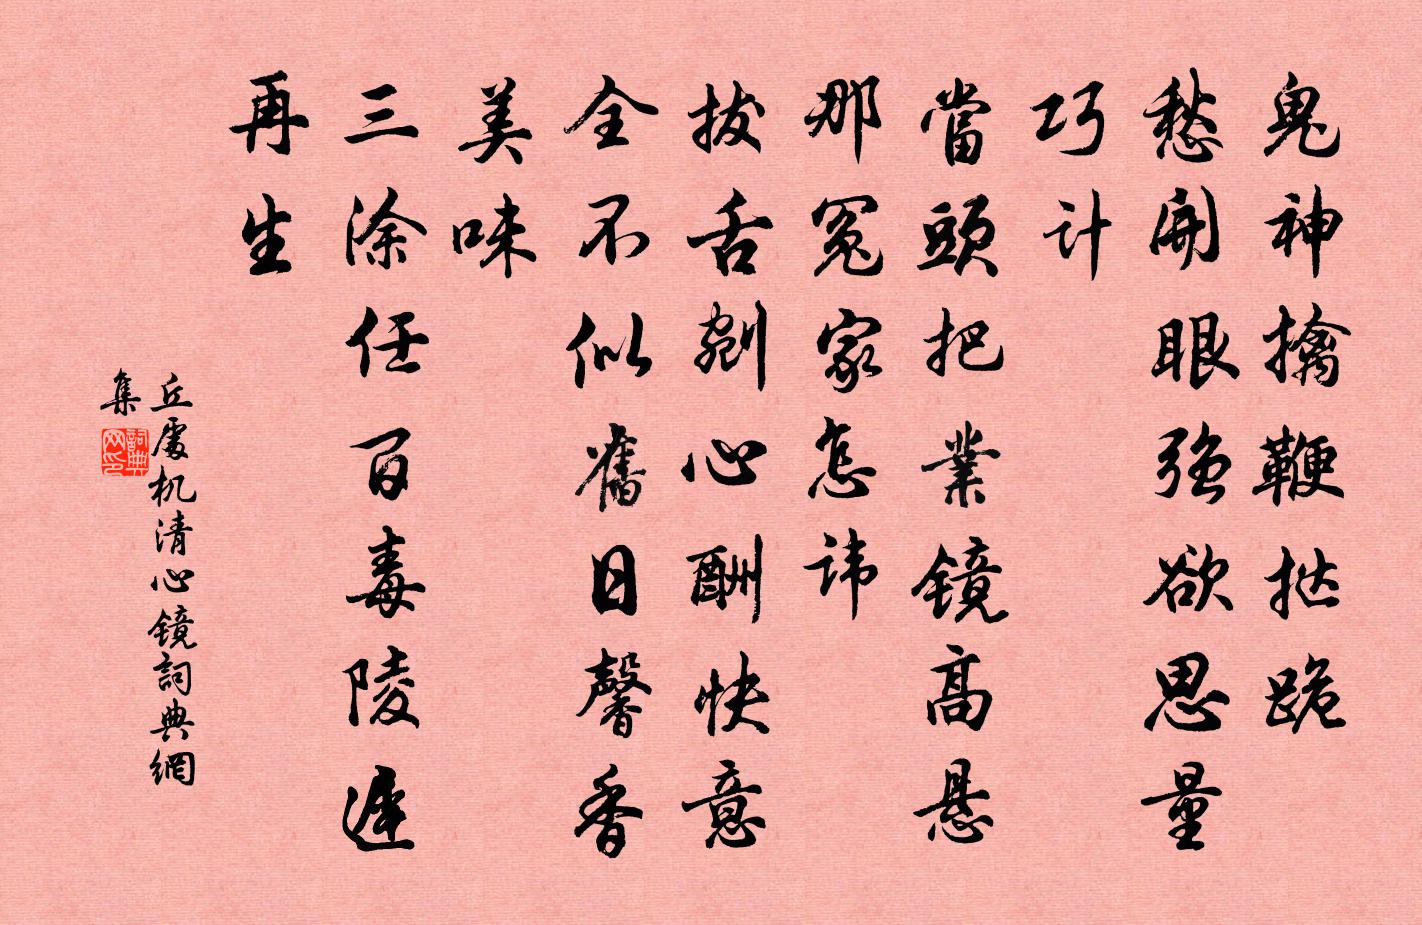 鬼神擒鞭挞跪
愁開眼强欲思量
巧计
當頭把業镜高悬
那冤家怎讳
拔舌剜心酬快意
全不似舊日馨香
美味
三涂任百毒陵遲
再生
丘處机清心镜詞典網
集
詞典
网印